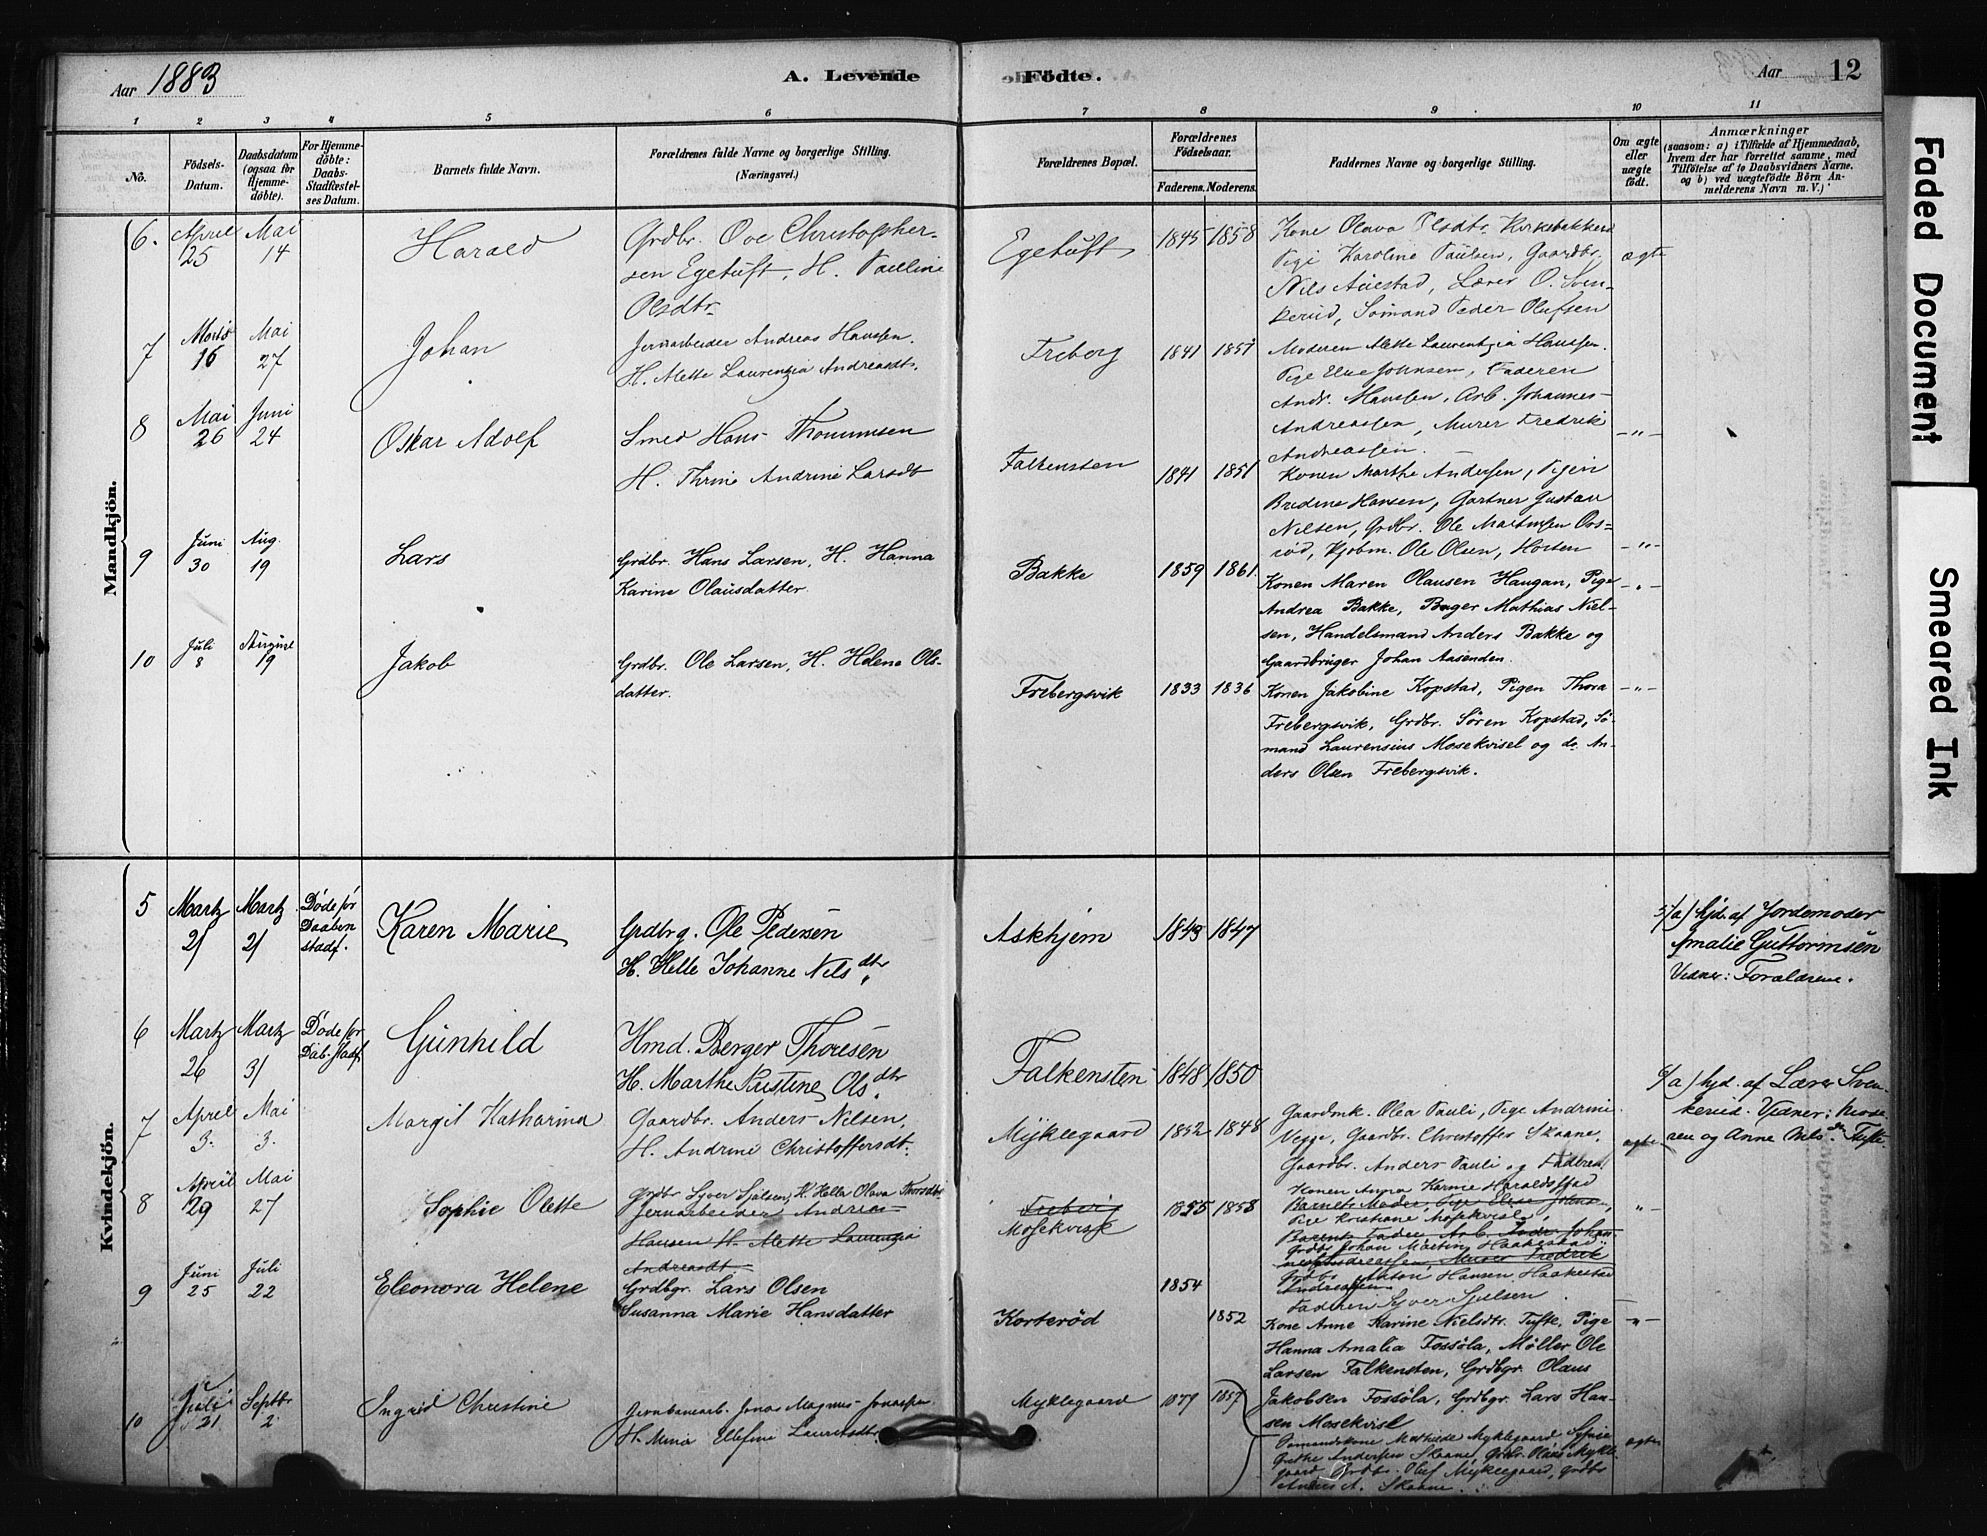 Aar 1883
A. Levende Födte.
Aar 12
1 2 3 4 5 6 7 8 9 10 11
No.
Födsels-Datum.
Daabsdatum (ogsaa for Hjemme-döbte).
For Hjemme-döbte: Daabs-Stadfæstel-ses Datum.
Barnets fulde Navn.
Forældrenes fulde Navne og borgerlige Stilling. (Næringsvei.)
Forældrenes Bopæl.
Forældrenes Födselsaar.
Faderens. Moderens.
Faddernes Navne og borgerlige Stilling.
Om ægte eller uægte födt.
Anmærkninger
(saasom: a) i Tilfælde af Hjemmedaab,
hvem der har forrettet samme, med
Tilföielse af to Daabsvidners Navne,
og b) ved uægtefödte Börn An-
melderens Navn m. V.)
Mandkjön.
6. April 25 Mai 14 Harald
Grdbr. Ove Christopher-
sen Egetuft, H. Pauline
Olsdtr
Egetuft 1845 1858
Kone Olava Olsdtr. Kirkebakken
Pige Karoline Paulsen, Gaardbr.
Nils Auestad, Lærer O. Sven-
kerud, Sømand Peder Olufsen
ægte
7 Marts 16 Mai 27 Johan
Jernarbeider Andreas Hanssen.
H. Alette Laurenzia Andreasdt.
Freberg 1841 1851
Moderen Alette Laurentzia Hanssen.
Pige Elise Johnsen, Faderen
Andr. Hanssen, Arb. Johannes
Andreassen, Murer Fredrik
Andreassen.
-"-
8 Mai 26 Juni 24 Oskar Adolf
Smed Hans Thommesen
H. Thrine Andrine Larsdt
Falkensten 1841 1851
Konen Marthe Andersen, Pigen
Bredine Hansen, Gartner Gustav
Nilsen, Grdbr. Ole Martinsen Ovs=
rød, Kjøbm. Ole Olsen, Horten
-"-
9 Juni 30 Aug. 19 Lars
Grdbr. Hans Larsen, H. Hanna
Karine Olausdatter.
Bakke 1859 1861.
Konen Maren Olausen Haugan, Pige
Andrea Bakke, Bager Mathias Niel-
sen, Handelsmand Anders Bakke og
Gaardbruger Johan Aasenden.
-"-
10 Juli 8 August 19 Jakob
Grdbr. Ole Larsen, H. Helene Ols-
datter.
Frebergsvik 1833 1836
Konen Jakobine Kopstad, Pigen Thora
Frebergsvik, Grdbr. Søren Kopstad, Sø-
mand Laurensius Mosekvisel og do. An-
ders Olsen Frebergsvik.
-"-
Kvindekjön.
5 Martz 21 Martz 21 Døde før Daaben stadf. Karen Marie
Grdbrg. Ole Pedersen
H. Helle Johanne Nilsdtr
Askhjem 1843 1847
5/a) hjd. af Jordemoder
Amalie Guttormsen
Vidner: Forældrene.
6 Martz 26 Martz 31 Døde før Daab. stadf. Gunhild
Hmd. Berger Thoresen
H. Marthe Kristine Olsdtr
Falkensten 1848 1850
6/a) hjd. af Lærer Sven-
kerud. Vidner: Mode-
ren og Anne Nilsdtr Tufte
7 April 3. Mai 3. Margit Katharina
Gaardbr. Anders Nilsen,
H. Andrine Christoffersdt.
Myklegaard 1852 1848
Gaardmk. Olea Pauli, Pige Andrine
Vegge, Gaardbr. Christoffer Skaane,
Gaardbr. Anders Pauli og Faderen
ægte
8 April 29 Mai 27 Sophie Olette
Grdbr Syver Sjølsen, H. Helle Olava Thorsdtr
Jernarbeider Andreas
Hansen H. Alette Laurenzia
Andreasdt
Freberg
Mosekvisle 1855 1858
Konen Anna Karine Haraldsstad
Barnets Moder, Pige Elise Johns-,
Pige Kristiane Mosekvisl,
Barnets Fader Arb. Andr. Johan-
Grdbr. Johan Martin Haakestad
nes Andreassen, Murer Fredrik
Grdbr. Anton Hansen Haakestad
Andreassen
Faderen Syver Sjølsen
-"-
9 Juni 25 Juli 22 Eleonora Helene
Grdbgr. Lars Olsen
Susanna Marie Hansdatter
Korterød 1854 1852
Kone Anne Karine Nielsdtr. Tufte, Pige
Hanna Amalia Fossøla, Møller Ole
Larsen Falkensten, Grdbgr. Olaus
Jakobsen Fossøla, Grdbgr. Lars Han-
sen Mosekvisl
-"-
10 Juli 21 Septbr 2 Ingrid Christine
Jernbanearb. Jonas Magnus Jonassen
H. Mina Elefine Lauritsdtr.
Myklegaard 1859 1857
Sømandskone Mathilde Myklegaard
Grethe Andersen Skaane, Grdbr. Olaus Mykle
gaard Grdbr. Oluf Myklegaard, Grdbr
Anders A. Skaane.
ægte
Faded Document
Smeared Ink